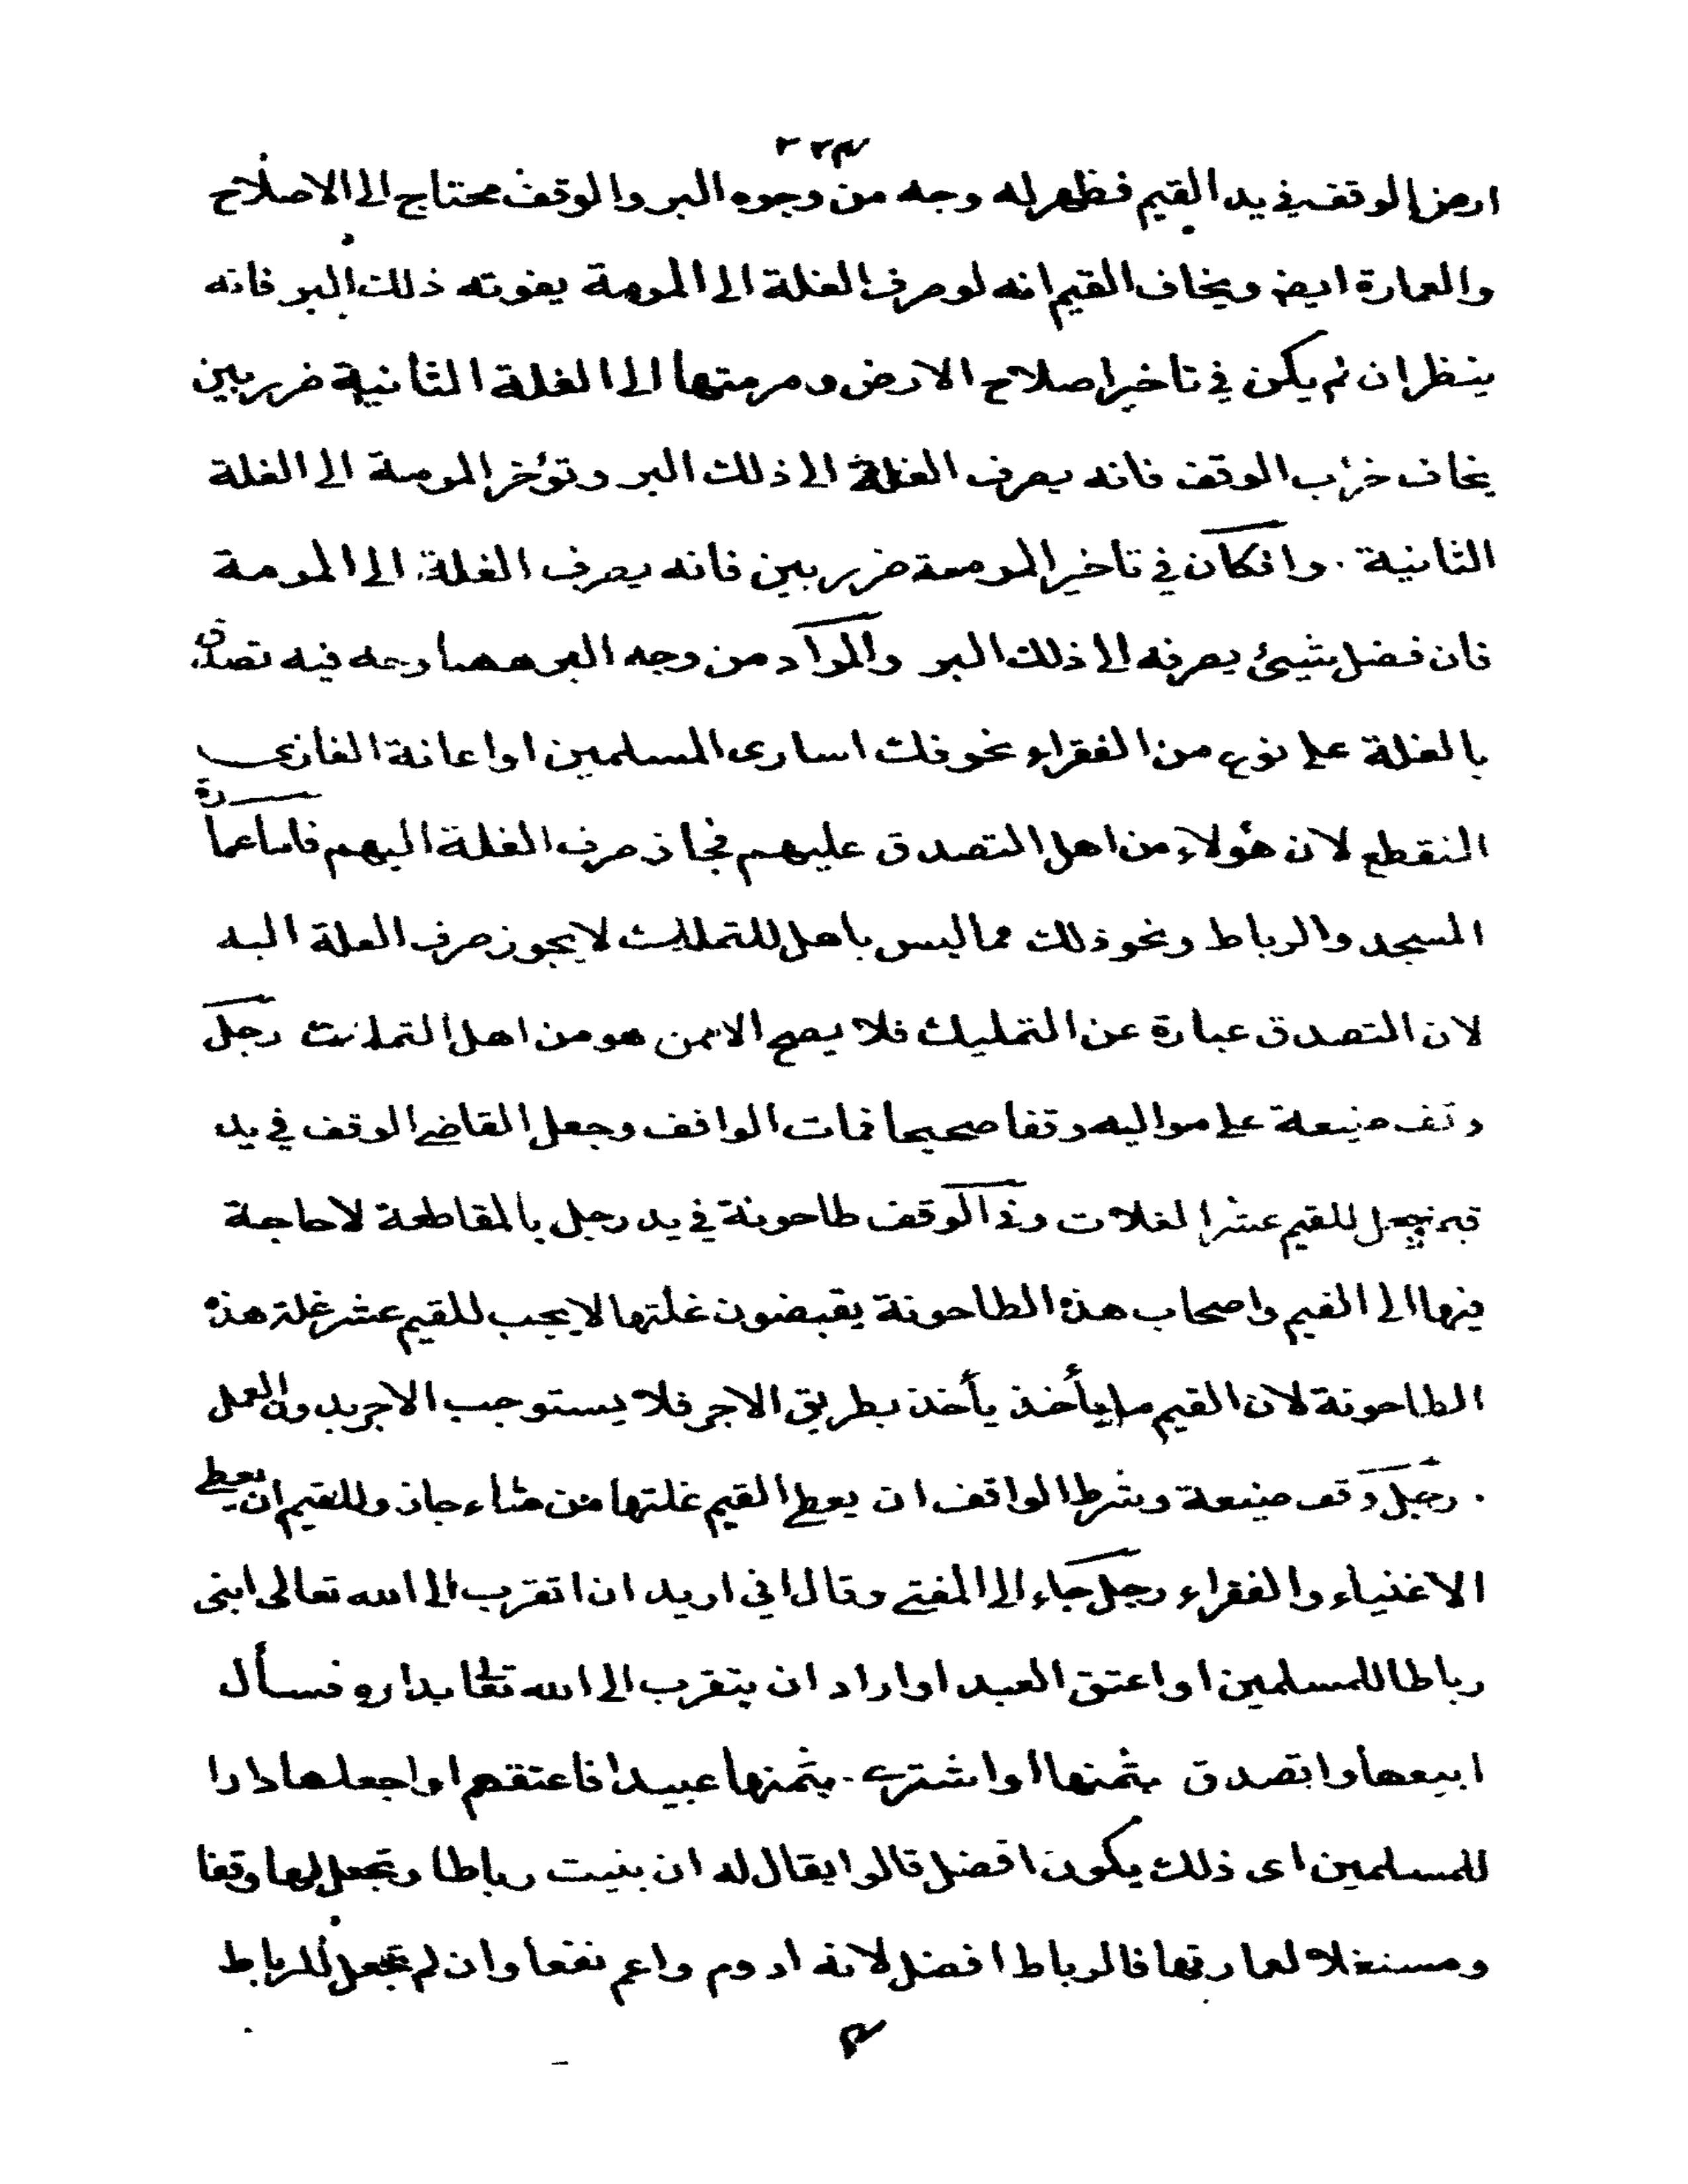 ارض الوقف في يد القيم فظهر له وجه من وجوه البر والوقف محتاج الى الاصلاح
والعمارة ايضا ويخاف القيم انه لو صرف الغلة الى المرمة يفوته ذلك البر فانه
ينظر ان لم يكن في تاخير اصلاح الارض ومرمتها الى الغلة الثانية ضرر بين
يخاف خراب الوقف فانه يصرف الغلة الى ذلك البر وتؤخر المرمة الى الغلة
الثانية . وانكان في تاخير المرمة ضرر بين فانه يصرف الغلة الى المرمة
فان فضل شيئ يصرفه الى ذلك البر والمراد من وجه البر ههنا وجه فيه تصدق
بالغلة على نوع من الفقراء نحو فك اسارى المسلمين او اعانة الغازى
المنقطع لان هؤلاء من اهل التصدق عليهم فجاز صرف الغلة اليهم فاما عمارة
المسجد والرباط ونحو ذلك مما ليس باهل للتمليك لا يجوز صرف الغلة اليه
لان التصدق عبارة عن التمليك فلا يصح الا ممن هو من اهل التمليك رجل
وقف ضيعة على مواليه وقفا صحيحا فمات الواقف وجعل القاضي الوقف في يد
قيم فجعل للقيم عشر الغلات وفي الوقف طاحونة في يد رجل بالمقاطعة لا حاجة
فيها الى القيم واصحاب هذه الطاحونة يقبضون غلتها لا يجب للقيم عشر غلة هذه
الطاحونة لان القيم ما يأخذ يأخذ بطريق الاجر فلا يستوجب الاجر بدون العمل
. رجل وقف ضيعة وشرط الواقف ان يعطي القيم غلتها من شاء جاز وللقيم ان يعطي
الاغنياء والفقراء رجل جاء الى المفتي وقال اني اريد ان اتقرب الى الله تعالى ابنى
رباطا للمسلمين او اعتق العبد او اراد ان يتقرب الى الله تعالى بداره فسأل
ابيعها واتصدق بثمنها او اشترى بثمنها عبيدا فاعتقهم او اجعلها دارا
للمسلمين اى ذلك يكون افضل قالوا يقال له ان بنيت رباطا وتجعل لها وقفا
ومستغلا لعمارتها فالرباط افضل لانه ادوم واعم نفعا وان لم تجعل للرباط